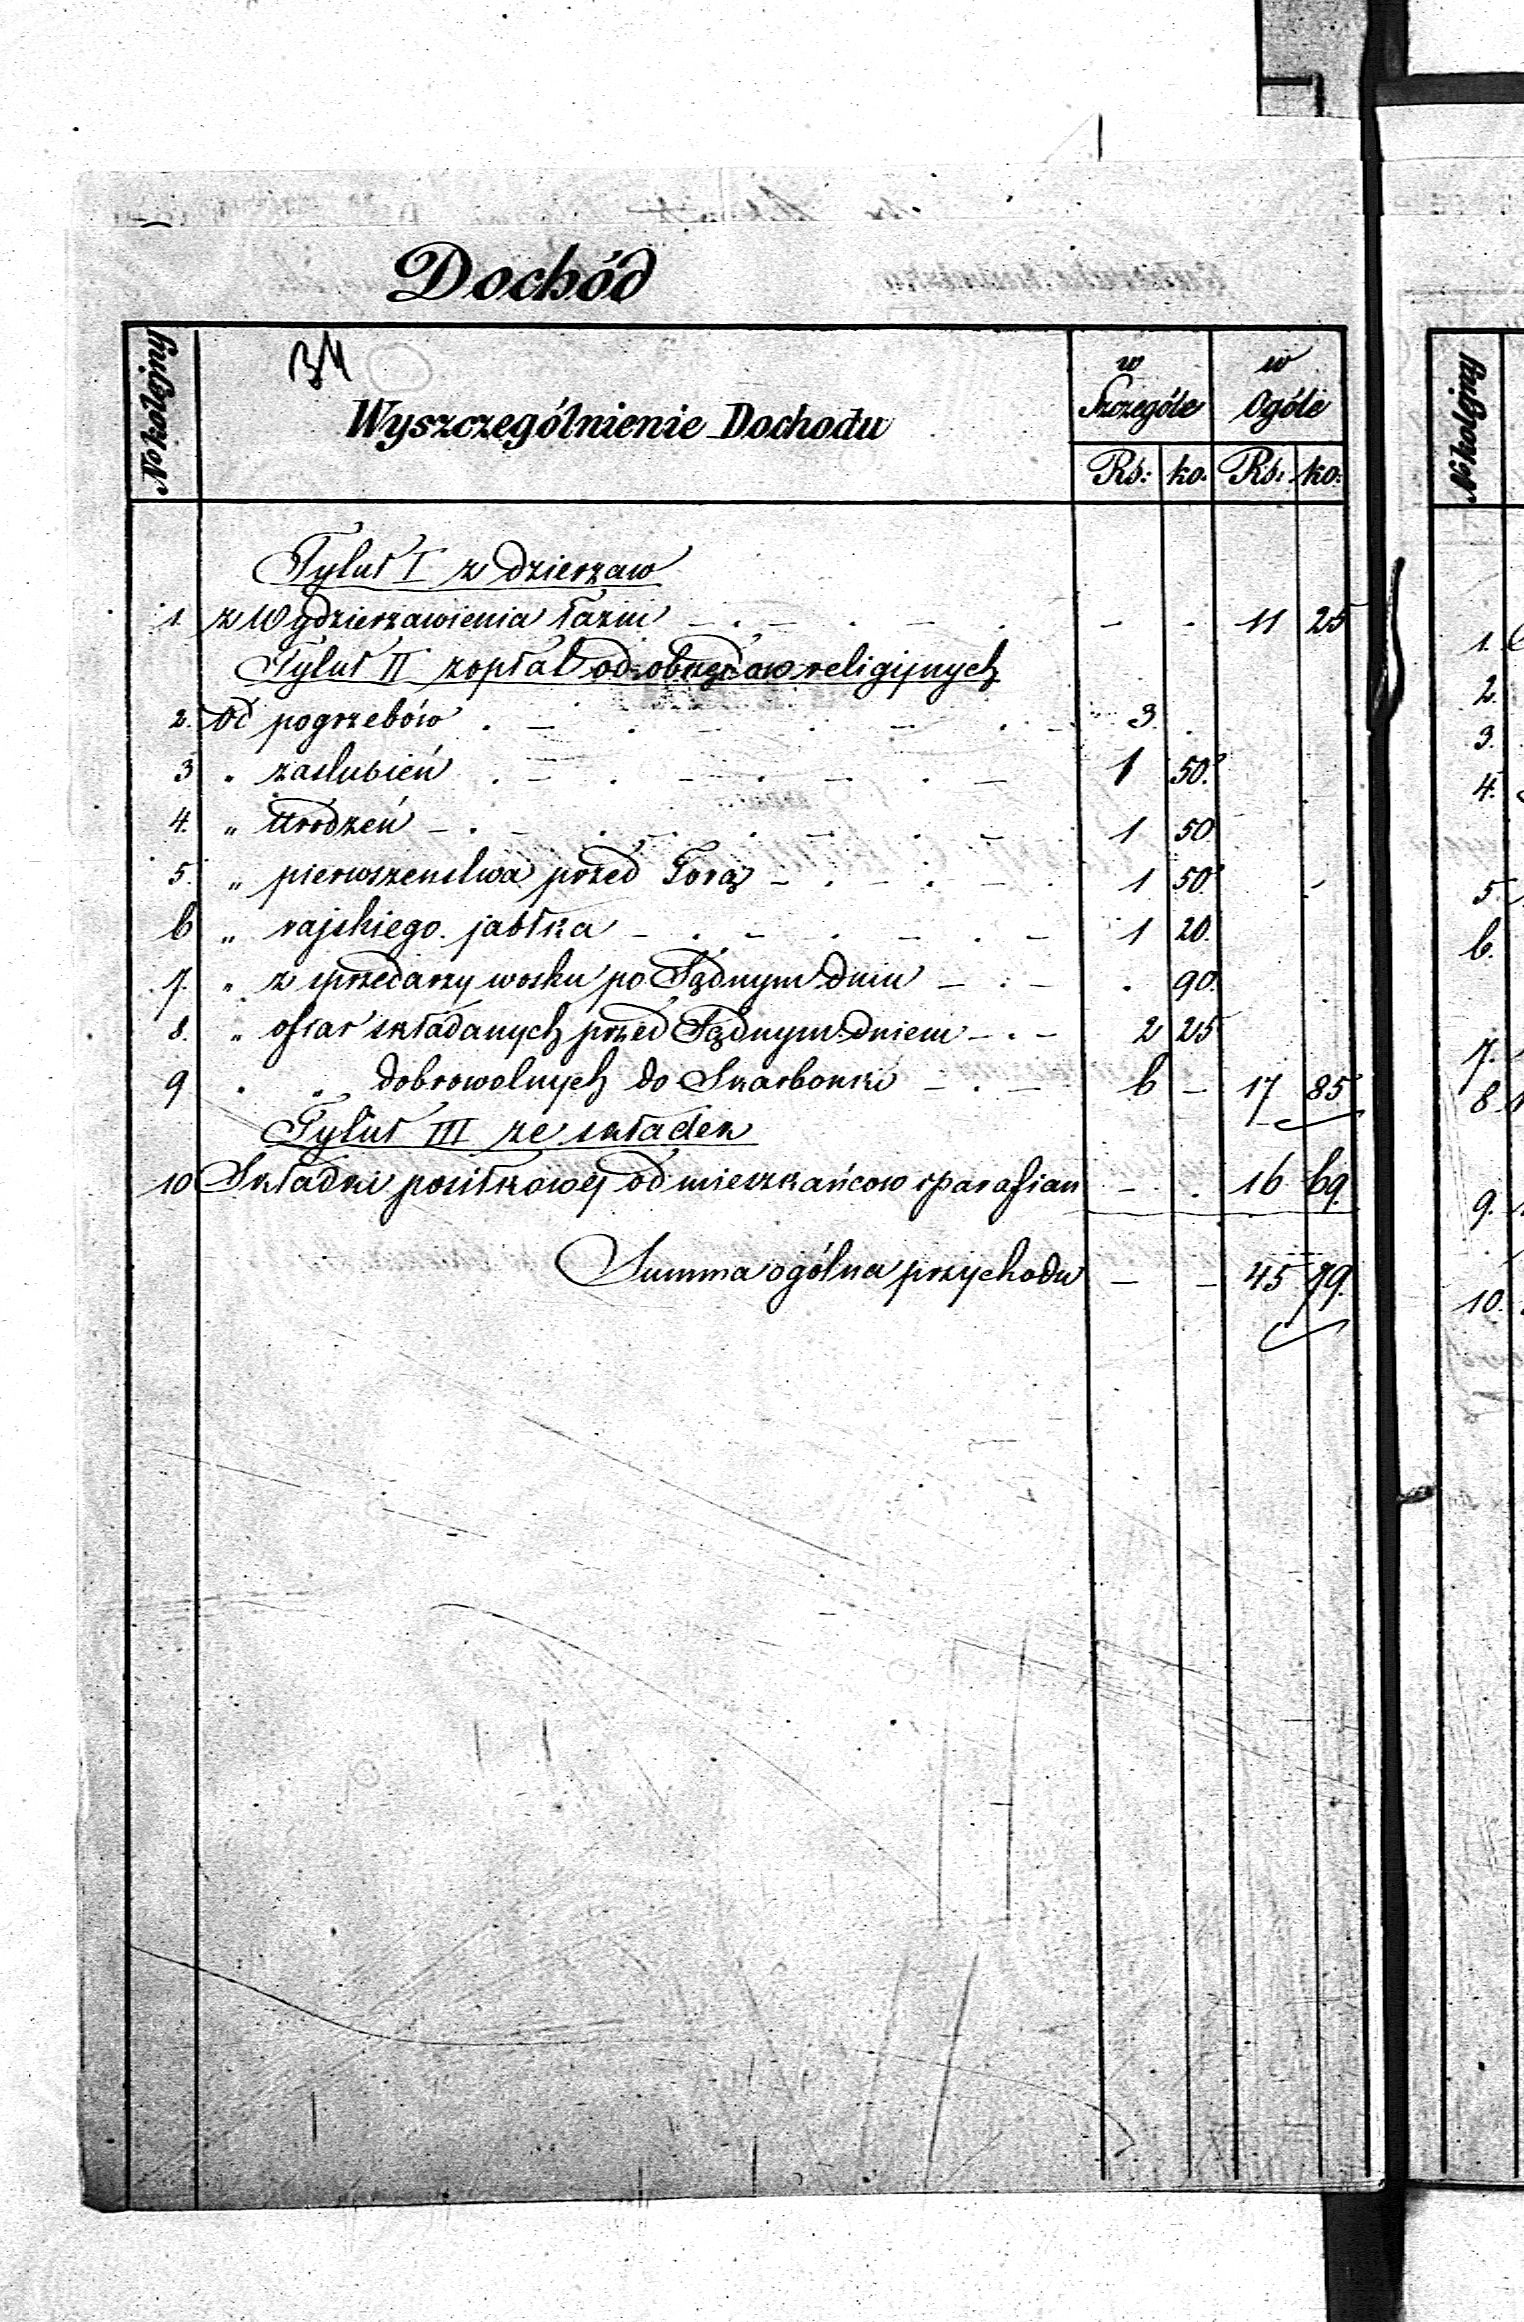 Dochód
No kolejny
34
Wyszczególnienie Dochodu
w Szczególe
w Ogóle
Rs: ko. Rs: ko:
Tytuł I z dzierzaw
1. z Wydzierzawienia łazni - . - . - . - . 11 25
Tytuł II z opłat od obrzędow religijnych
2. Od pogrzebów . - . - . - . - 3 .
3 " zaslubień . - . - . - . - 1 50.
4. " Urodzeń - . - . - . - . - 1 50
5. " pierwszenstwa przed Torą - . - . - . 1 50
6 " rajskiego jabłka - . - . - . - 1 20.
7. " z sprzedarzy wosku po Sądnym Dniu - . - . 90.
8. " ofiar składanych przed Sądnym Dniem - . - 2 25
9 " " dobrowolnych do Skarbonki - . - 6 - 17 85
Tytuł III ze składek
10 Składki posiłkowej od mieszkańcow i parafian - . 16 69.
Summa ogólna przychodu - - 45 79.
No kolejny
1.
2.
3.
4.
5.
6.
7.
8
9.
10.